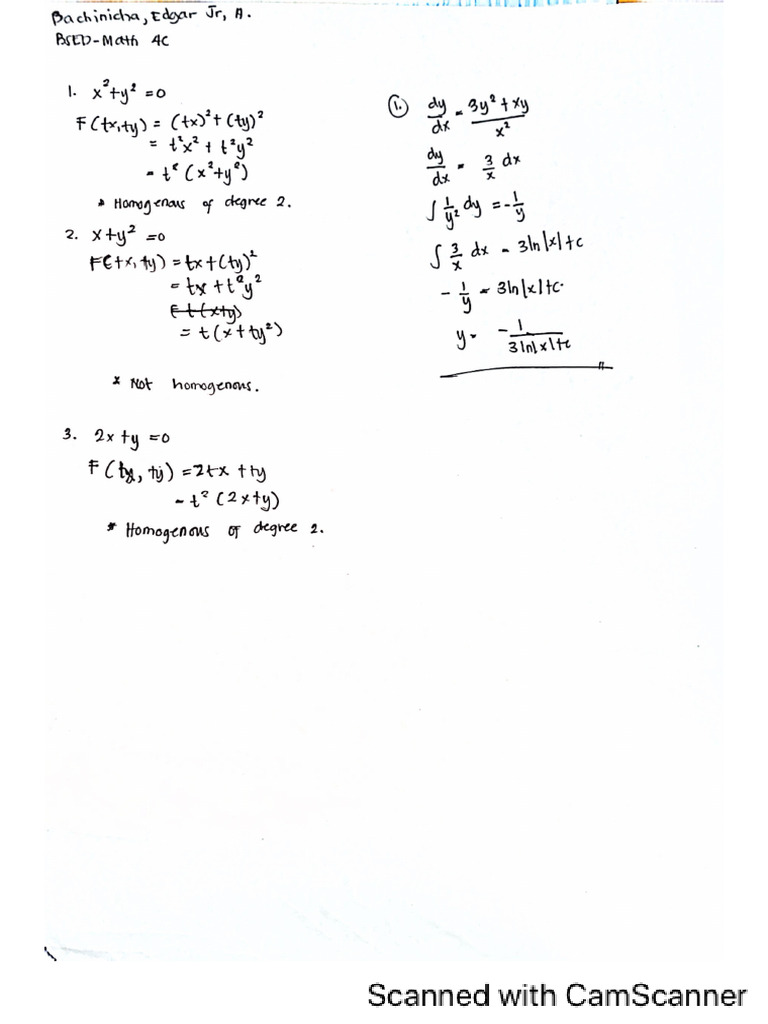 Bachinicha, Edgar Jr, A.
BSED-Math 4C
1. x²+y² =0
F(tx,ty) = (tx)²+(ty)²
= t²x² + t²y²
= t² (x²+y²)
* Homogenous of degree 2.
2. x+y² =0
F(tx, ty) = tx+(ty)²
= tx + t²y²
= t (x+ty²)
* Not homogenous.
3. 2x +y =0
F (tx, ty) = 2tx + ty
= t² (2x+y)
* Homogenous of degree 2.
1. dy/dx = 3y²+xy/x²
dy/dx = 3/x dx
∫ 1/y² dy = -1/y
∫ 3/x dx = 3ln|x|+c
- 1/y = 3ln|x|+c.
y = -1/3ln|x|+c
Scanned with CamScanner